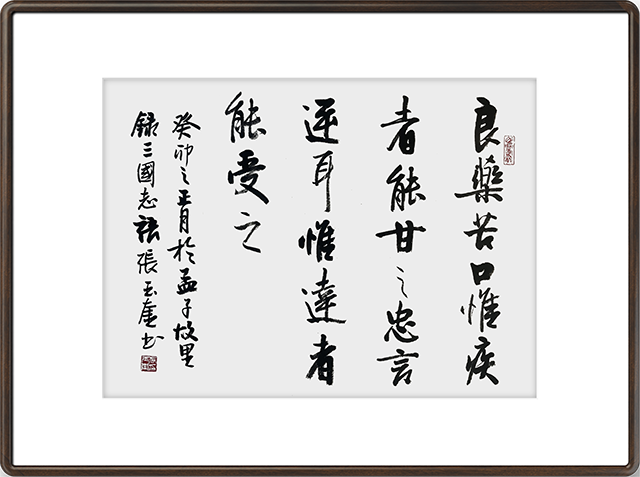 良藥苦口惟疾
者能甘之忠言
逆耳惟達者
能受之
癸卯之正月於孟子故里
錄三國志張玉奎书